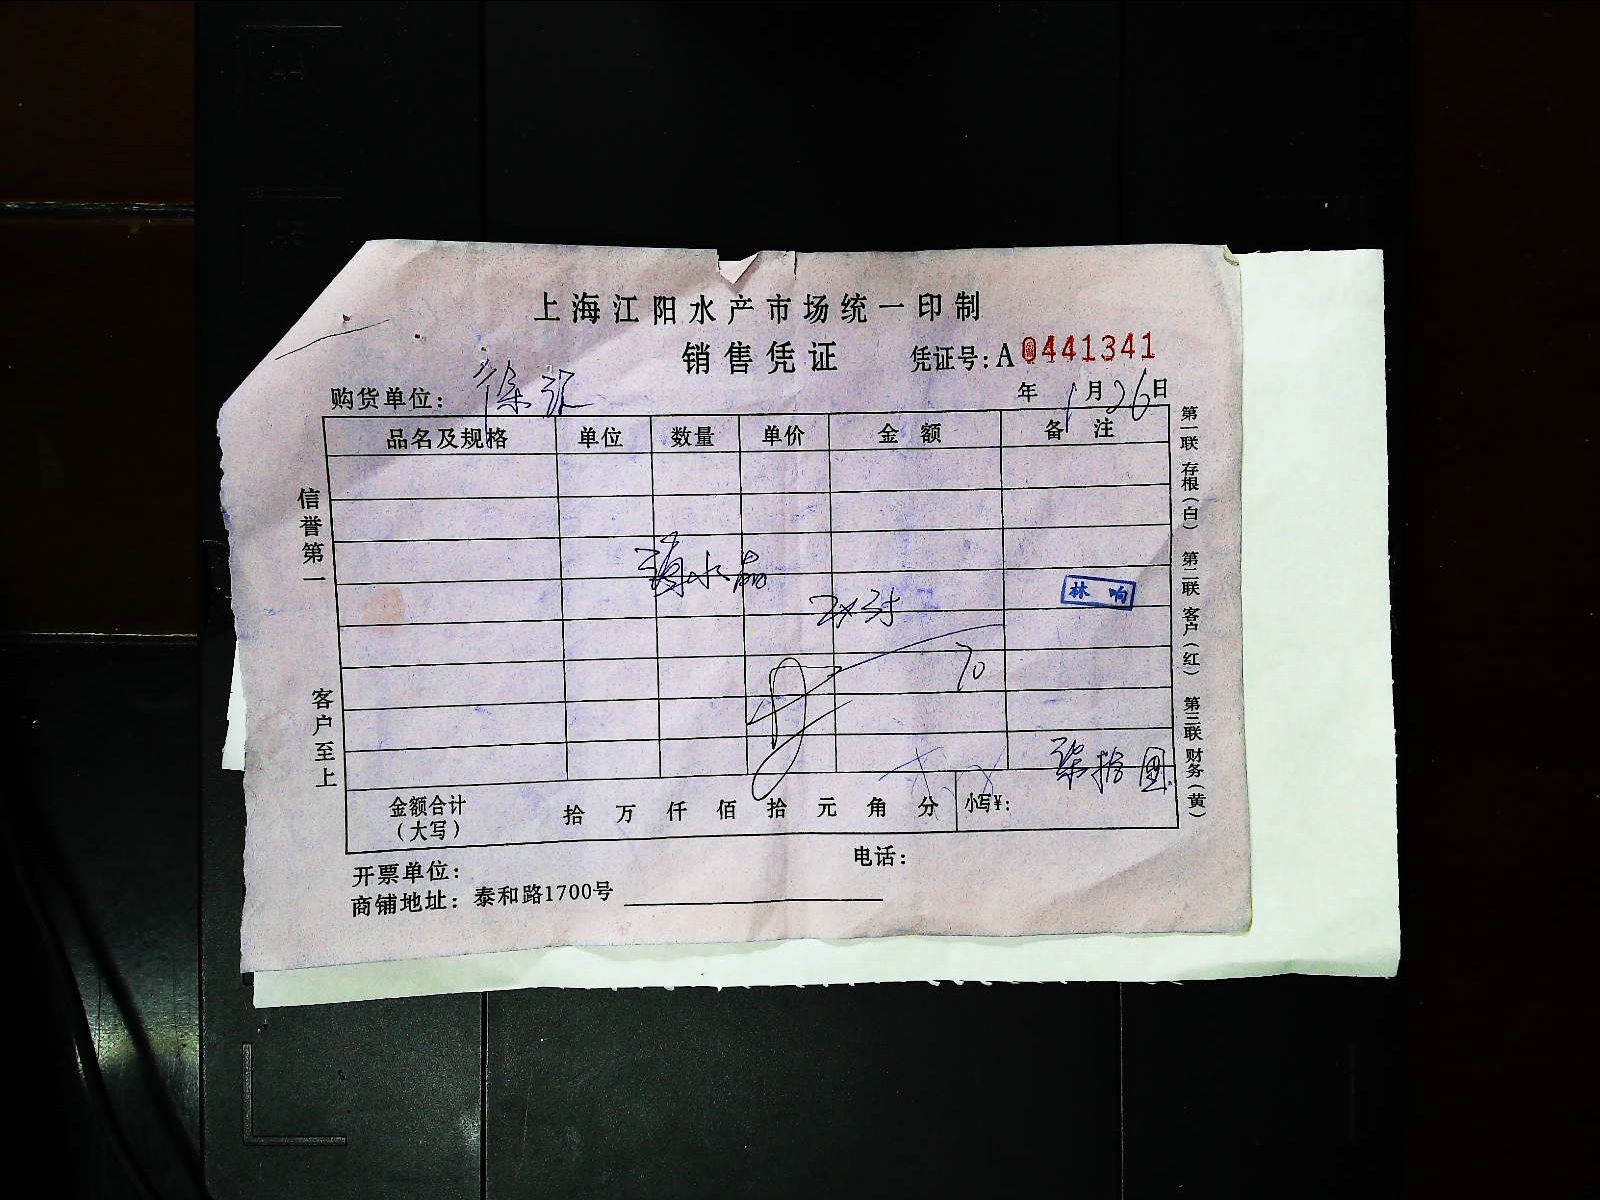 上海江阳水产市场统一印制
销售凭证 凭证号:A 0441341
购货单位: 徐 年 1 月 26 日
品名及规格 单位 数量 单价 金额 备注
水晶
林响
70
柒拾圆
金额合计(大写) 拾 万 仟 佰 拾 元 角 分 小写¥:
开票单位: 电话:
商铺地址: 泰和路1700号
信誉第一 客户至上
第一联 存根(白) 第二联 客户(红) 第三联 财务(黄)